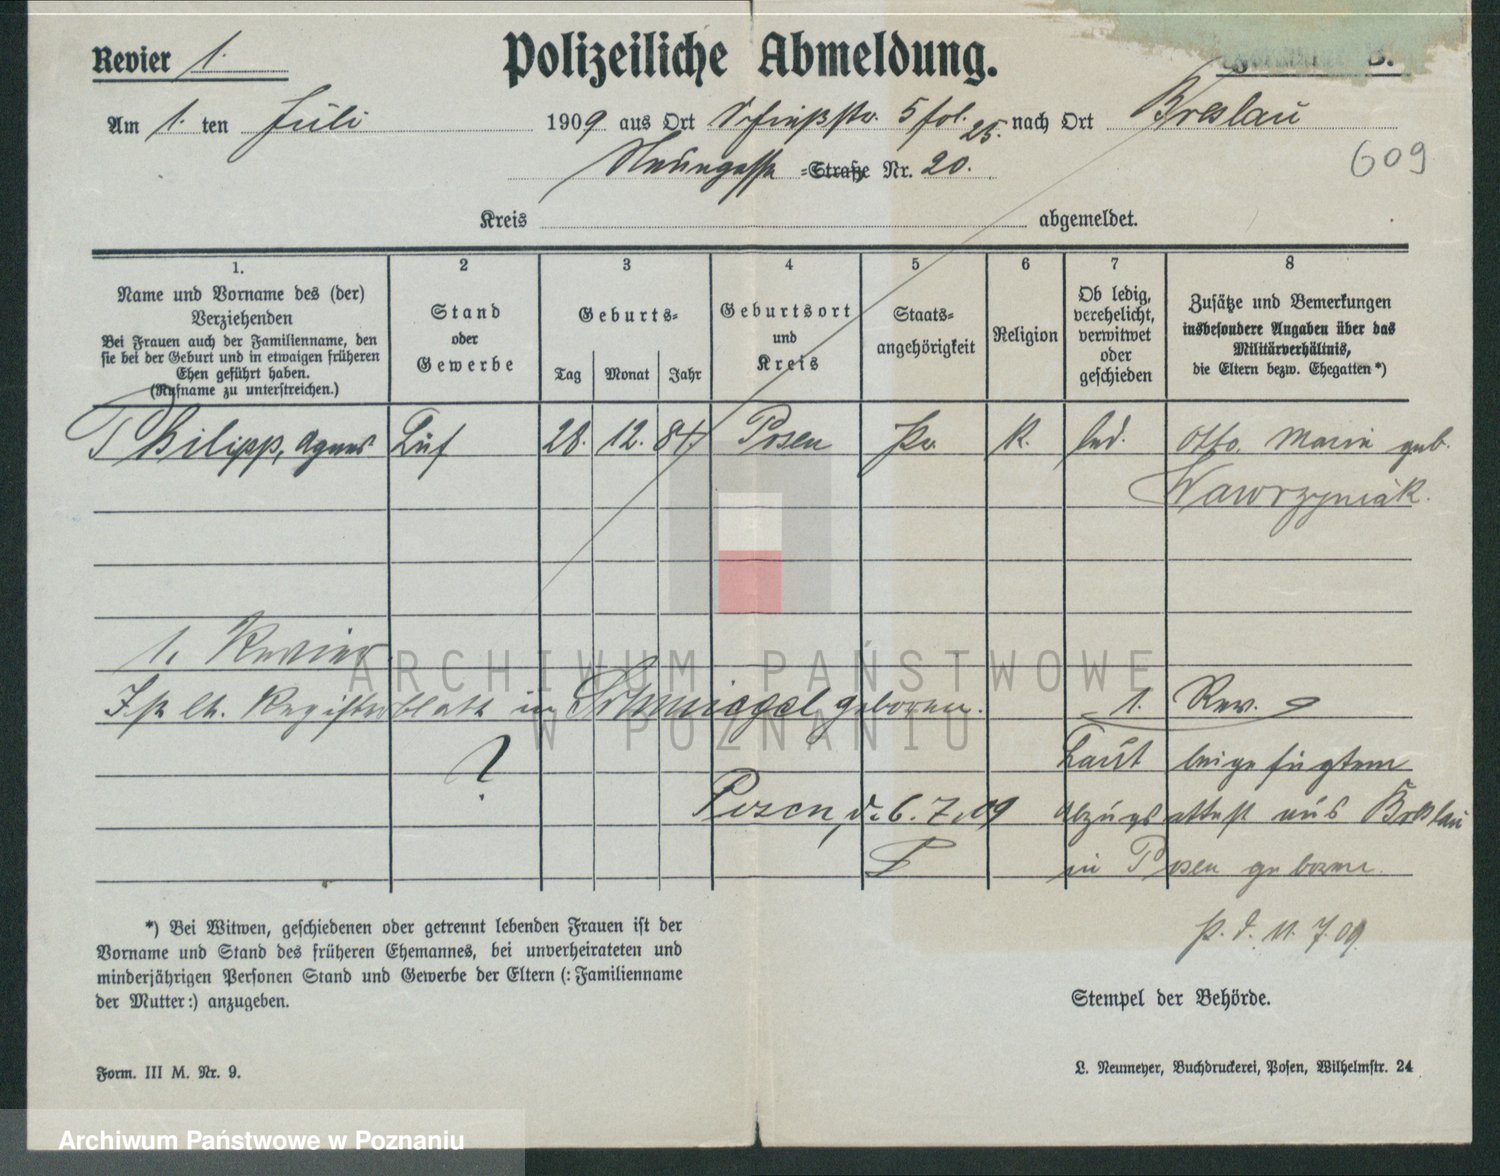 Revier 1.
Polizeiliche Abmeldung.
B.
Am 1. ten Juli 1909 aus Ort 5 fol. 25. nach Ort Breslau
Neuegasse =Straße Nr. 20.
609
Kreis abgemeldet.
1. 2 3 4 5 6 7 8
Name und Vorname des (der) Verziehenden
Bei Frauen auch der Familienname, den sie bei der Geburt und in etwaigen früheren Ehen geführt haben.
(Rufname zu unterstreichen.)
Stand oder Gewerbe
Geburts=
Tag Monat Jahr
Geburtsort und Kreis
Staats= angehörigkeit
Religion
Ob ledig, verehelicht, verwitwet oder geschieden
Zusätze und Bemerkungen insbesondere Angaben über das Militärverhältnis, die Eltern bezw. Ehegatten *)
Philipp, Agnes 28. 12. 84 Posen Pr. k. led. Otto, Marie geb.
Wawrzyniak.
1. Revier
Ist lt. Registerblatt in Schmiegel geboren.
?
Posen, d. 6. 7. 09
1. Rev.
Laut beigefügtem
Abzugsattest aus Breslau
in Posen geboren.
P. d. 11. 7. 09.
*) Bei Witwen, geschiedenen oder getrennt lebenden Frauen ist der
Vorname und Stand des früheren Ehemannes, bei unverheirateten und
minderjährigen Personen Stand und Gewerbe der Eltern (: Familienname
der Mutter :) anzugeben.
Stempel der Behörde.
Form. III M. Nr. 9.
L. Neumeyer, Buchdruckerei, Posen, Wilhelmstr. 24
ARCHIWUM PAŃSTWOWE
W POZNANIU
Archiwum Państwowe w Poznaniu